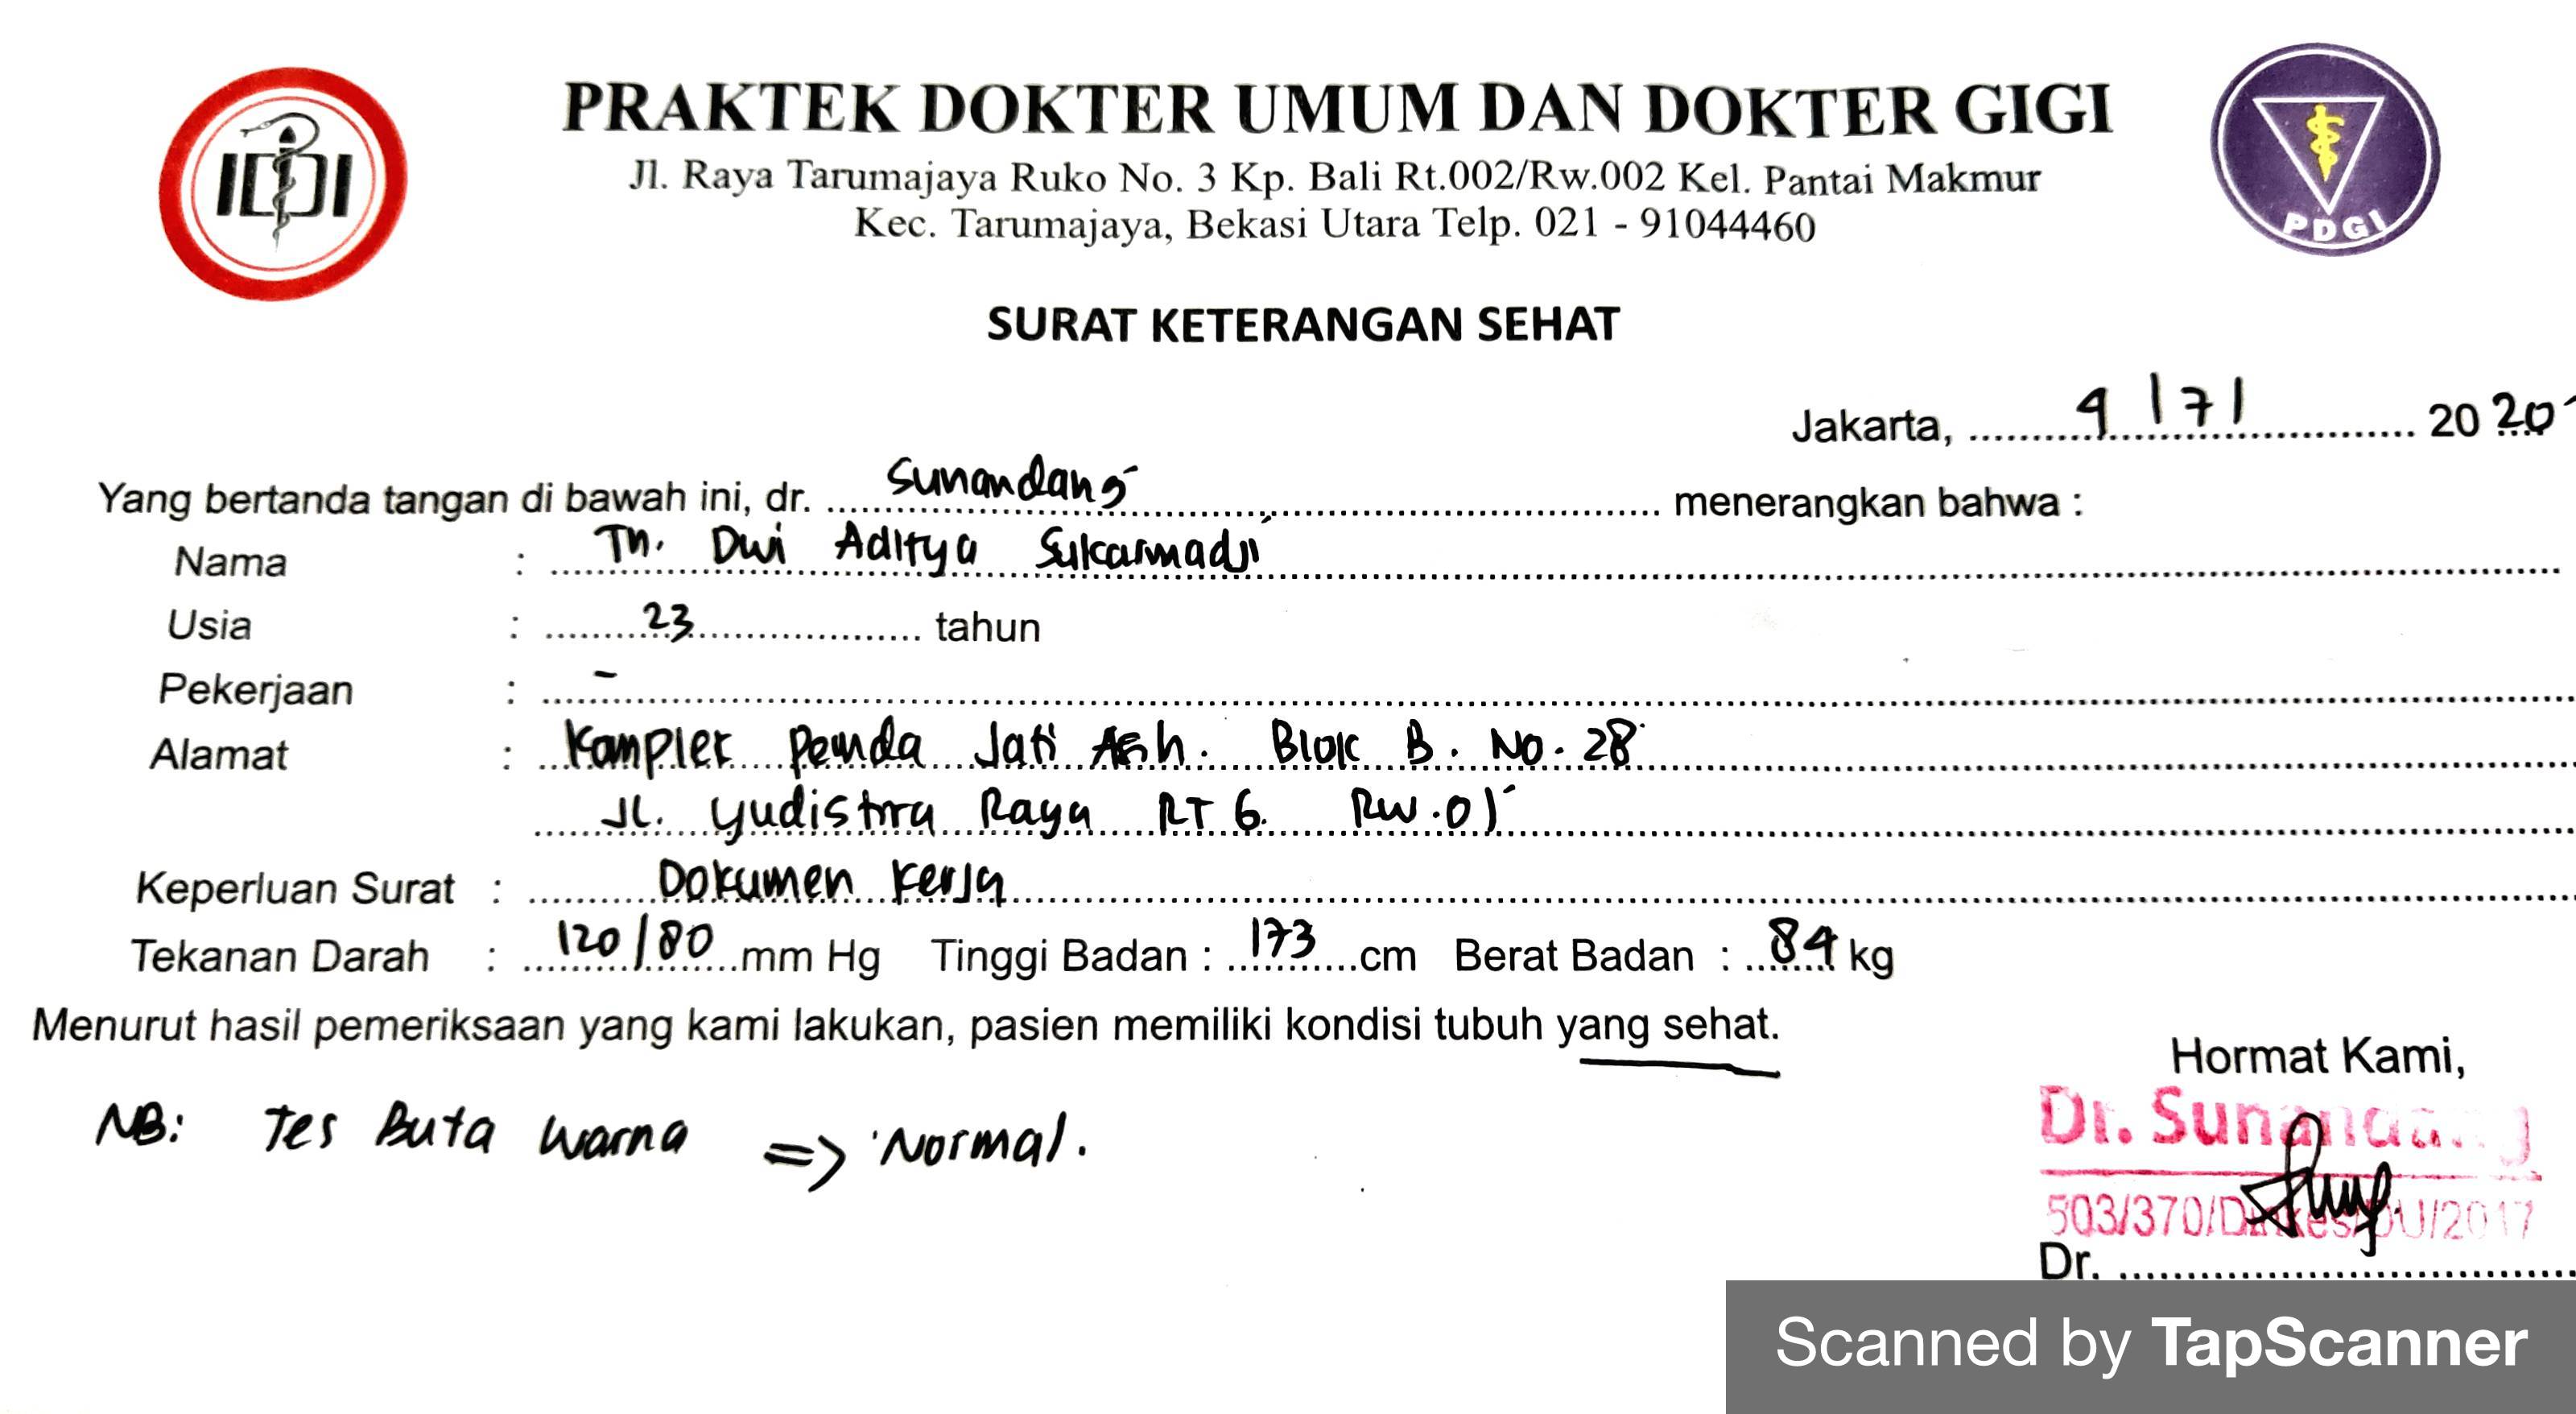 IDI
PRAKTEK DOKTER UMUM DAN DOKTER GIGI
Jl. Raya Tarumajaya Ruko No. 3 Kp. Bali Rt.002/Rw.002 Kel. Pantai Makmur
Kec. Tarumajaya, Bekasi Utara Telp. 021 - 91044460
PDGI
SURAT KETERANGAN SEHAT
Jakarta, 4/7/ 2020
Yang bertanda tangan di bawah ini, dr. Sunandang menerangkan bahwa :
Nama : Tn. Dwi Aditya Sukarmadji
Usia : 23 tahun
Pekerjaan : -
Alamat : Komplek Pemda Jati Asih. Blok B. No. 28
Jl. Yudistira Raya RT 6. RW.01
Keperluan Surat : Dokumen Kerja
Tekanan Darah : 120/80 mm Hg Tinggi Badan : 173 cm Berat Badan : 84 kg
Menurut hasil pemeriksaan yang kami lakukan, pasien memiliki kondisi tubuh yang sehat.
NB: Tes Buta Warna => Normal.
Hormat Kami,
Dr. Sunandang
503/370/Dinkes/DU/2017
Dr.
Scanned by TapScanner